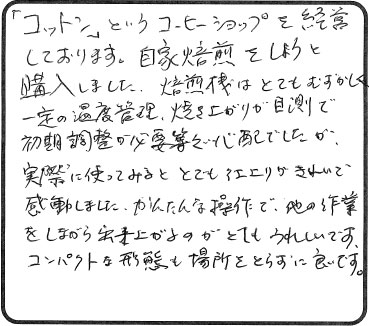 「コットン」というコーヒーショップを経営
しております。自家焙煎をしようと
購入しました。焙煎機はとてもむずかしく
一定の温度管理、焼き上がりが目測で
初期調整が必要等で心配でしたが、
実際に使ってみるととても仕上りがきれいで
感動しました。かんたんな操作で、他の作業
をしながら出来上がるのがとてもうれしいです。
コンパクトな形態も場所をとらずに良いです。